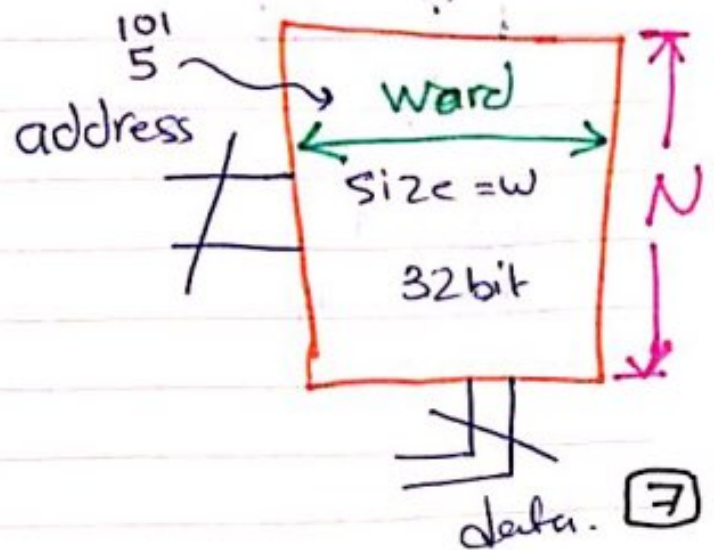 101
5
address
word
size = w
32bit
N
data.
7